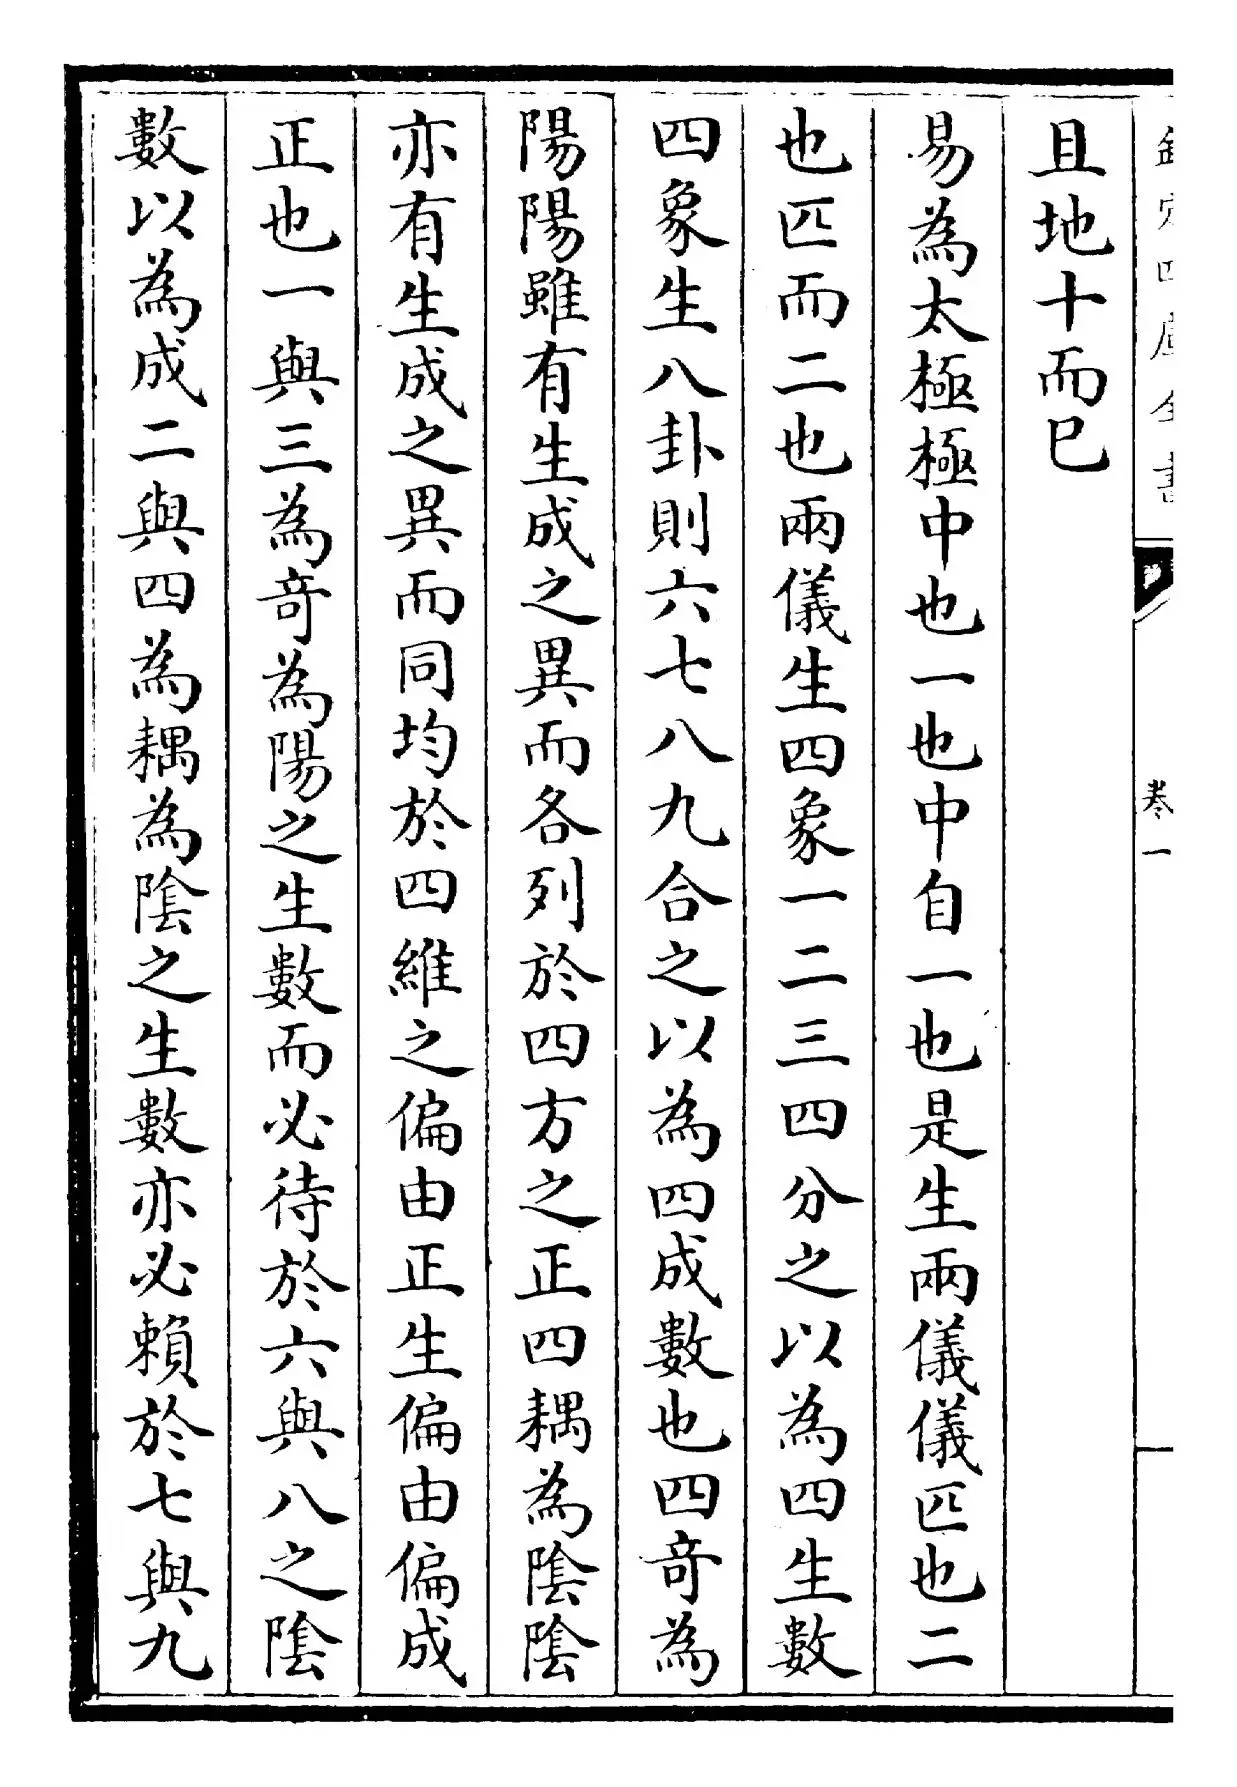 欽定四庫全書
卷一
且地十而已
易為太極極中也一也中自一也是生兩儀儀匹也二
也匹而二也兩儀生四象一二三四分之以為四生數
四象生八卦則六七八九合之以為四成數也四奇為
陽陽雖有生成之異而各列於四方之正四耦為陰陰
亦有生成之異而同均於四維之偏由正生偏由偏成
正也一與三為奇為陽之生數而必待於六與八之陰
數以為成二與四為耦為陰之生數亦必賴於七與九